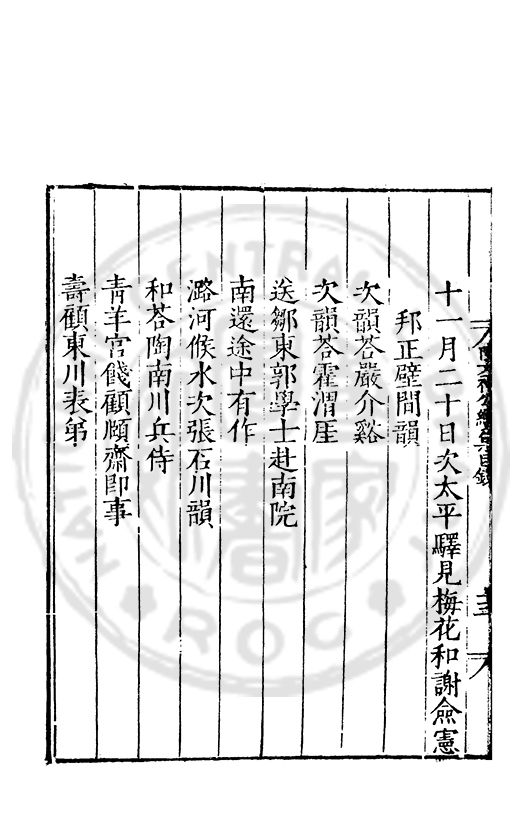 十一月二十日次太平驛見梅花和謝僉憲
邦正壁間韻
次韻荅嚴介谿
次韻荅霍渭厓
送鄒東郭學士赴南院
南還途中有作
潞河候水次張石川韻
和荅陶南川兵侍
青羊宮餞顧頤齋即事
壽顧東川表弟
CENTRAL
ROC